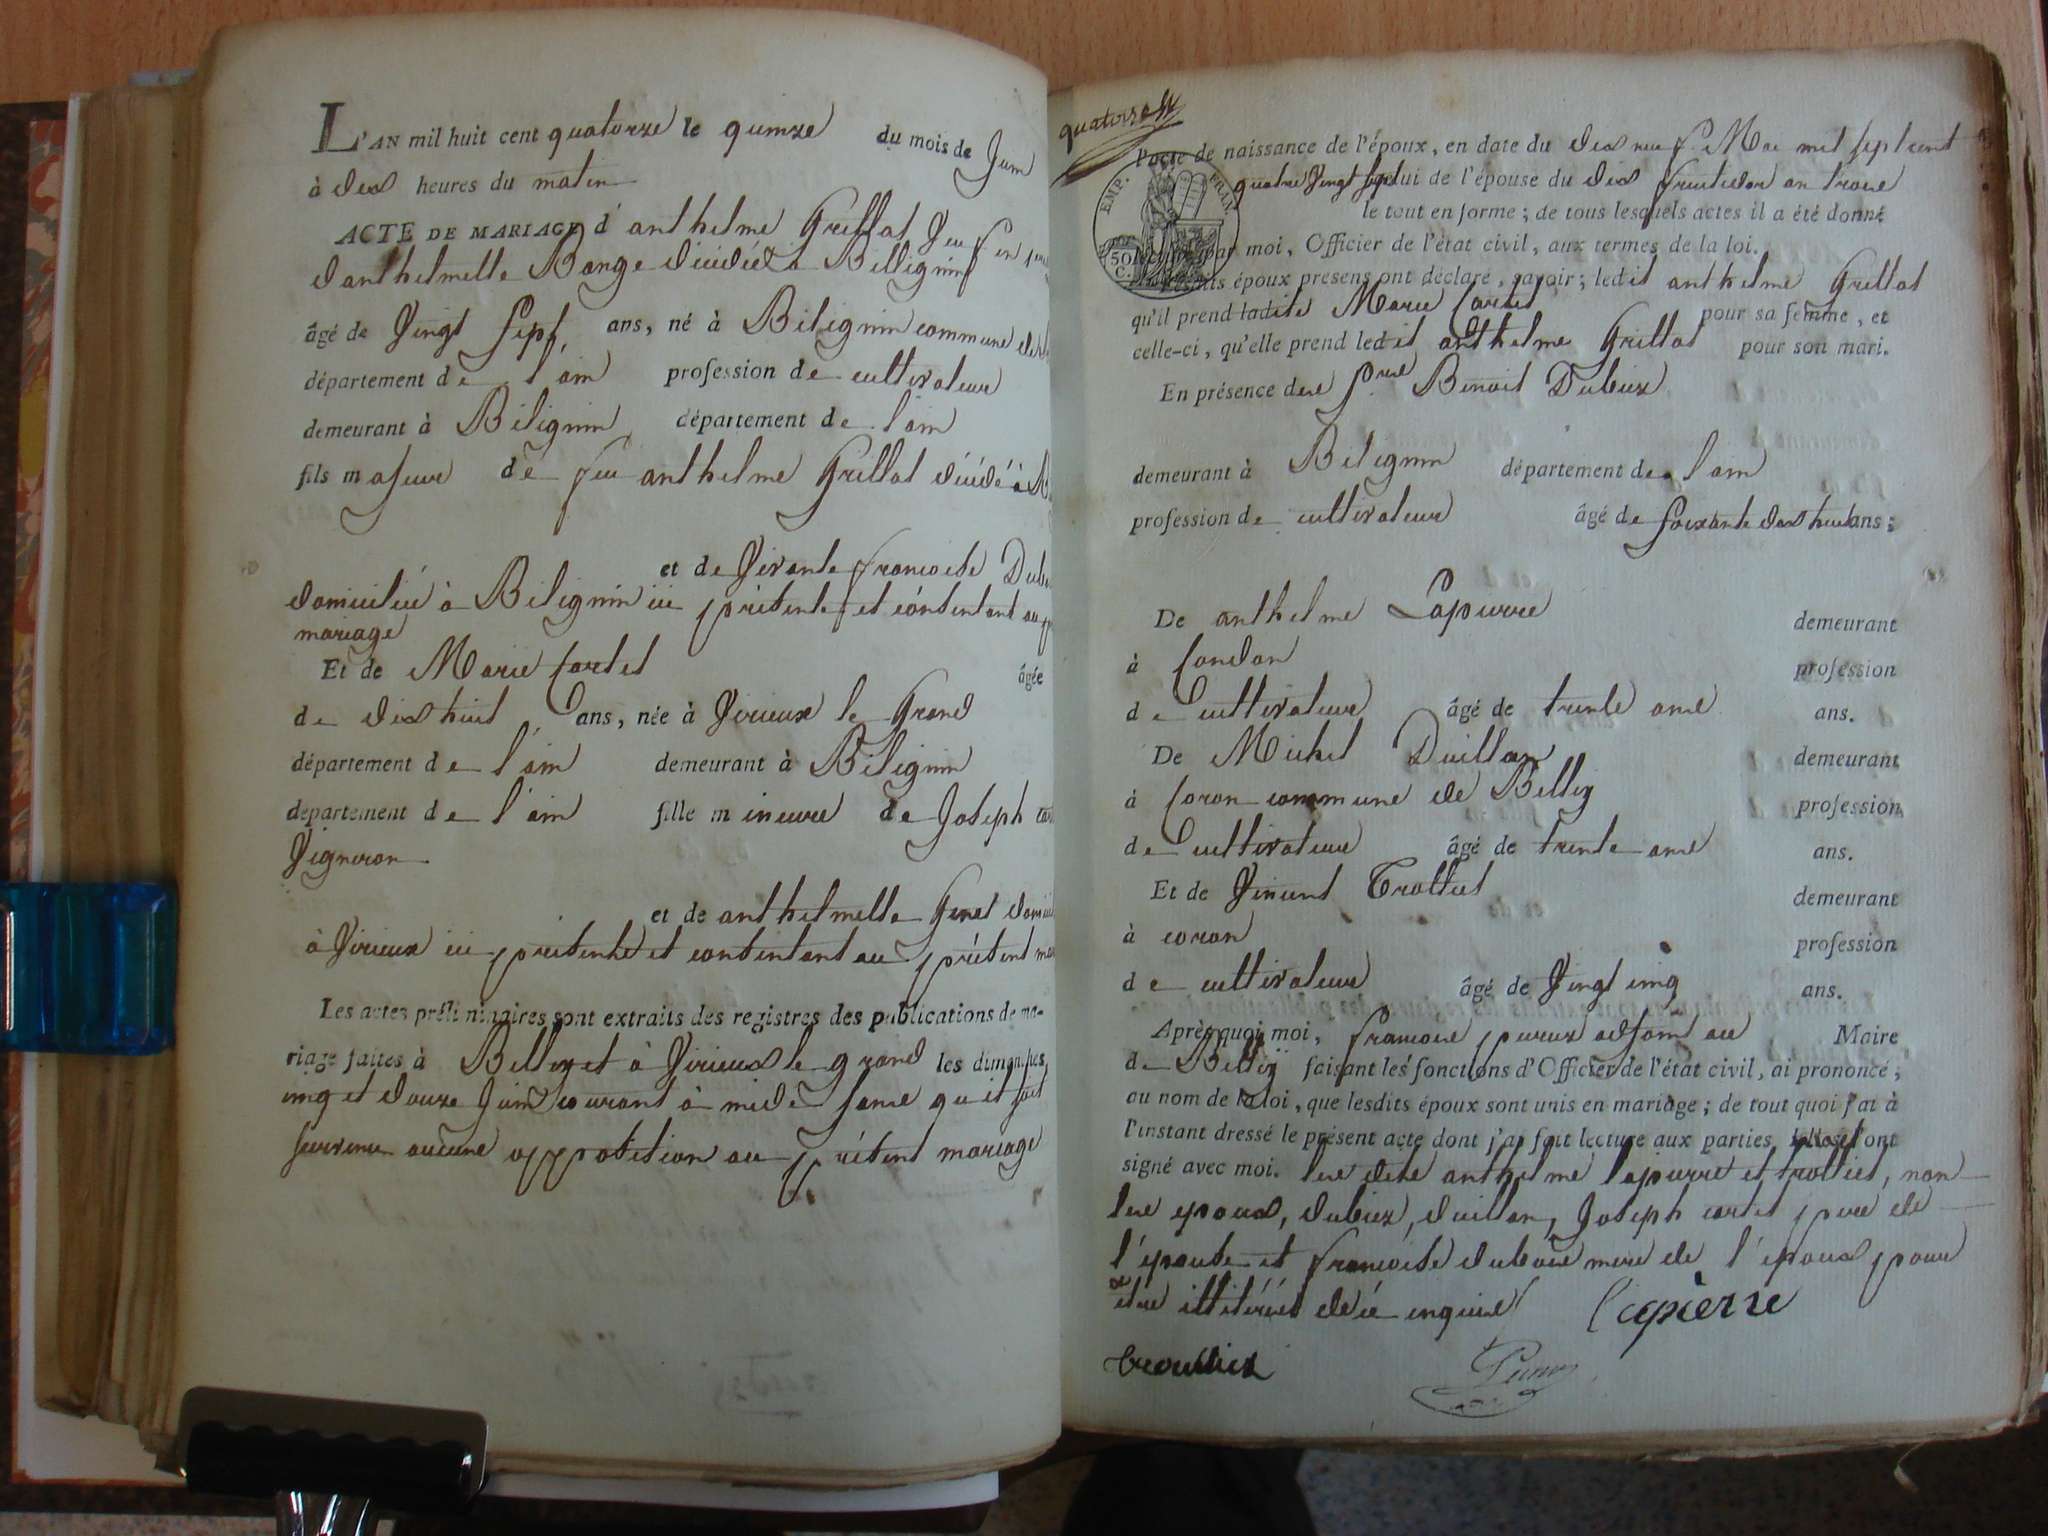 L'AN mil huit cent quatorze le quinze du mois de Juin
à dix heures du matin
ACTE DE MARIAGE d'anthelme Grillat Veuf en
d'anthelmette Bonge décédée à Billignin
âgé de Vingt Sept ans, né à Bilignin commune de
département de l'ain profession de cultivateur
demeurant à Bilignin département de l'ain
fils majeur de feu anthelme Grillat décédé à
et de Vivante françoise
domiciliée à Bilignin ici présente et consentant au
mariage
Et de Marie Cartet âgée
de dix huit ans, née à Virieux le Grand
département de l'ain demeurant à Bilignin
departement de l'ain fille mineure de Joseph
Vigneron
et de anthelmette Genet
à Virieux ici présente et consentant au présent
Les actes préliminaires sont extraits des registres des publications de ma-
riage faites à Belley et à Virieux le grand les dimanches
cinq et douze Juin courant à midi sans qu'il soit
survenu aucune opposition au présent mariage
quatorze
l'acte de naissance de l'époux, en date du dix neuf Mai mil sept cent
quatre Vingt sept celui de l'épouse du dix fructidor an troise
le tout en forme; de tous lesquels actes il a été donné
lecture par moi, Officier de l'état civil, aux termes de la loi.
Lesdits époux presens ont déclaré, savoir; ledit anthelme Grillat
qu'il prend ladite Marie Cartet pour sa femme, et
celle-ci, qu'elle prend ledit anthelme Grillat pour son mari.
En présence de Benoit Dubiez
demeurant à Bilignin département de l'ain
profession de cultivateur âgé de soixante dix huit ans;
De anthelme Lapierre demeurant
à Condon profession
de Cultivateur âgé de trente ans.
De Michel Duillon demeurant
à Coron commune de Belley profession
de Cultivateur âgé de trente ans.
Et de Vincent Trolliet demeurant
à coron profession
de cultivateur âgé de Vingt cinq ans.
Après quoi moi, françois adjoint au Maire
de Belley faisant les fonctions d'Officier de l'état civil, ai prononcé,
au nom de la loi, que lesdits époux sont unis en mariage; de tout quoi j'ai à
l'instant dressé le présent acte dont j'ai fait lecture aux parties, ont
signé avec moi. les dits anthelme lapierre et trolliet, non
les epoux, dubiez, duillon, Joseph cartet pere de
l'epouse et françoise mere de l'epoux pour
être illitérés de ce enquis
Lapierre
EMP. FRAN.
50 C.